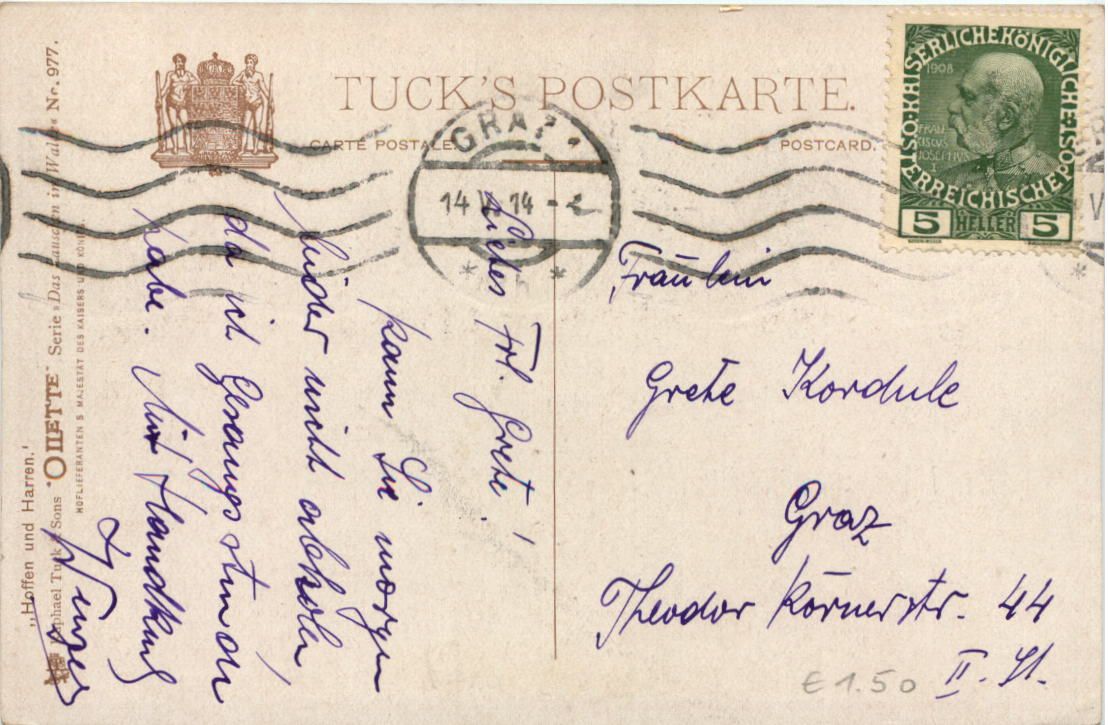 TUCK'S POSTKARTE.
CARTE POSTALE
POSTCARD.
GRAZ
14 V 14
KAISERLICHE KÖNIGLICHE ÖSTERREICHISCHE POST
1908
FRAN
CISCVS
JOSEPHVS
5 HELLER 5
„Hoffen und Harren."
Raphael Tuck & Sons "OILETTE" Serie »Das Rauschen im Walde« Nr. 977.
HOFLIEFERANTEN S MAJESTÄT DES KAISERS UND KÖNIGS.
Liebes Frl. Grete!
kann Sie morgen
leider nicht abholen
da ich Gesangsstunde
habe. Mit Handkuß
Fräulein
Grete Kordule
Graz
Theodor Körnerstr. 44
II. St.
€ 1.50